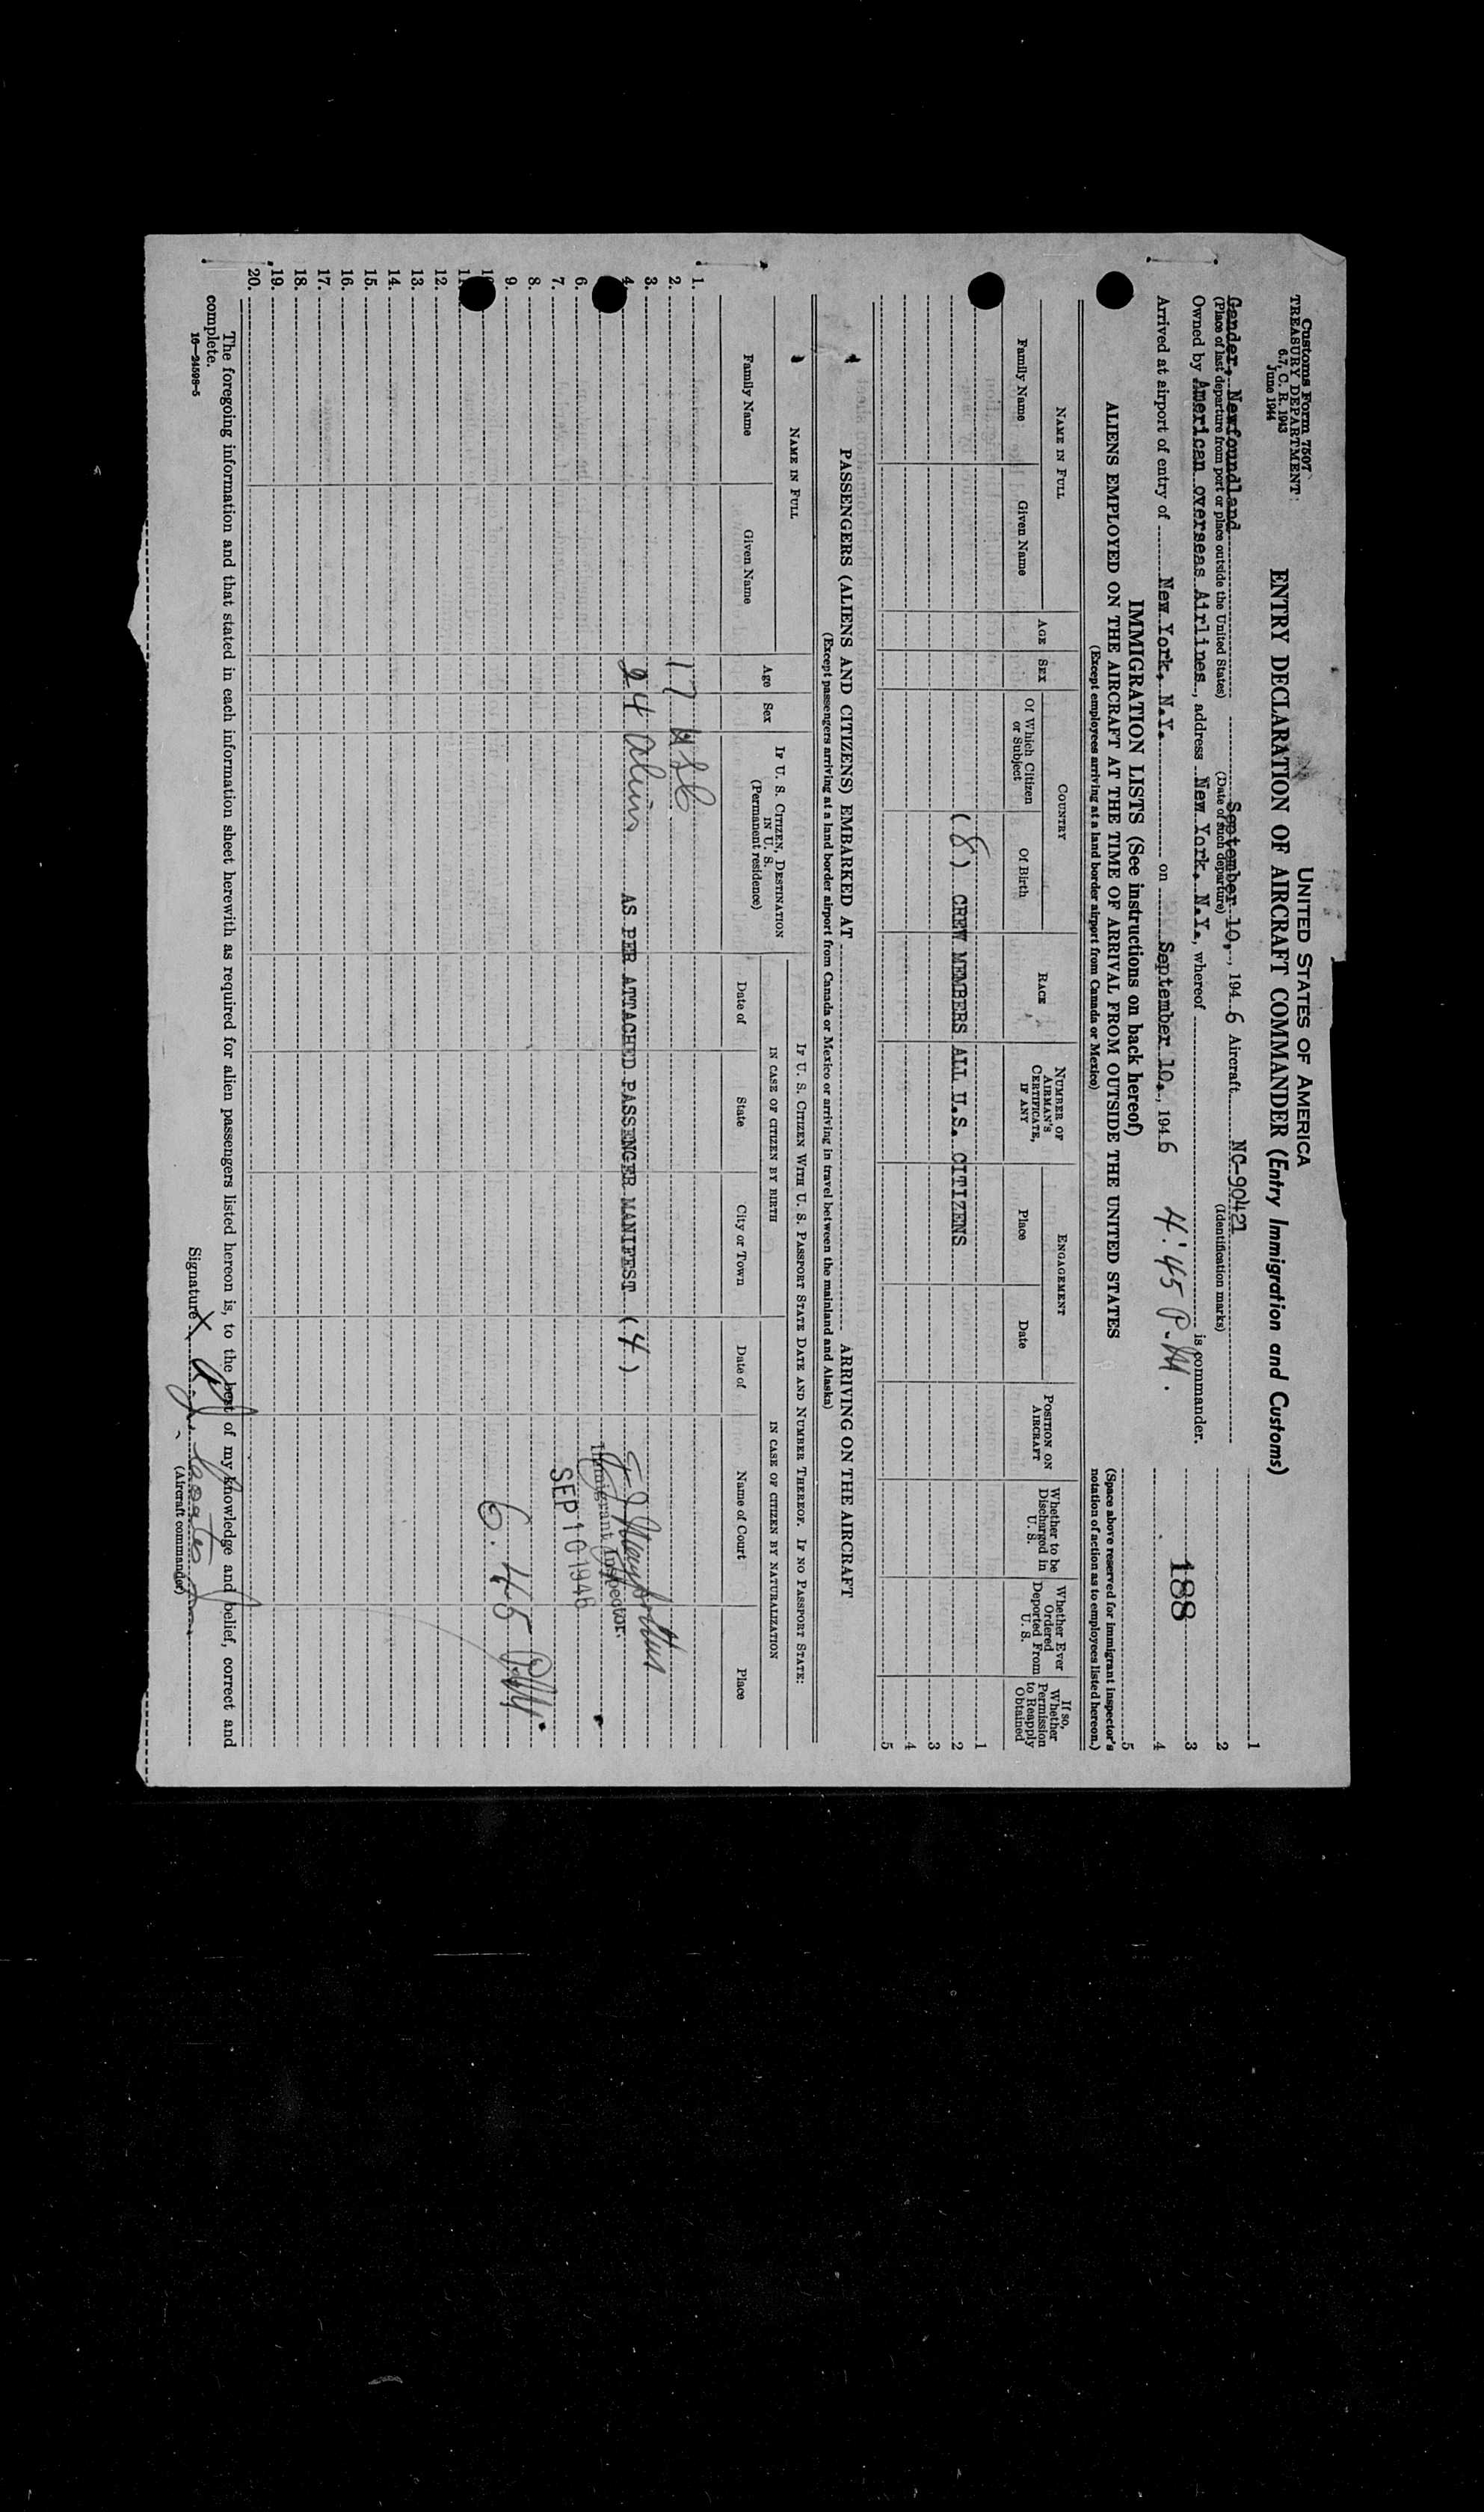 Customs Form 7507
TREASURY DEPARTMENT
6.7, C. R. 1943
June 1944
UNITED STATES OF AMERICA
ENTRY DECLARATION OF AIRCRAFT COMMANDER (Entry Immigration and Customs)
Gander, Newfoundland September 10, 1946 Aircraft NC-90421
(Place of last departure from port or place outside the United States) (Date of such departure) (Identification marks)
Owned by American overseas Airlines, address New York, N.Y., whereof is commander.
Arrived at airport of entry of New York, N.Y. on September 10, 1946 4:45 P.M.
1
2
3
4
5
188
(Space above reserved for immigrant inspector's notation of action as to employees listed hereon.)
IMMIGRATION LISTS (See instructions on back hereof)
ALIENS EMPLOYED ON THE AIRCRAFT AT THE TIME OF ARRIVAL FROM OUTSIDE THE UNITED STATES
(Except employees arriving at a land border airport from Canada or Mexico)
NAME IN FULL
Family Name
Given Name
AGE
SEX
COUNTRY
Of Which Citizen or Subject
Of Birth
RACE
NUMBER OF AIRMAN'S CERTIFICATE, IF ANY
ENGAGEMENT
Place
Date
POSITION ON AIRCRAFT
Whether to be Discharged in U. S.
Whether Ever Ordered Deported From U. S.
If so, Whether Permission to Reapply Obtained
1
(8) CREW MEMBERS ALL U.S. CITIZENS 2
3
4
5
PASSENGERS (ALIENS AND CITIZENS) EMBARKED AT ARRIVING ON THE AIRCRAFT
(Except passengers arriving at a land border airport from Canada or Mexico or arriving in travel between the mainland and Alaska)
NAME IN FULL
Family Name
Given Name
Age
Sex
IF U. S. CITIZEN, DESTINATION IN U. S.
(Permanent residence)
IF U. S. CITIZEN WITH U. S. PASSPORT STATE DATE AND NUMBER THEREOF. IF NO PASSPORT STATE:
IN CASE OF CITIZEN BY BIRTH
IN CASE OF CITIZEN BY NATURALIZATION
Date of
State
City or Town
Date of
Name of Court
Place
1.
2. 17 USC
3.
4. 24 aliens AS PER ATTACHED PASSENGER MANIFEST (4)
Immigrant Inspector.
6.
7. SEP 10 1946
8.
9. 6:45 PM
10
11
12.
13.
14.
15.
16.
17.
18.
19.
20.
The foregoing information and that stated in each information sheet herewith as required for alien passengers listed hereon is, to the best of my knowledge and belief, correct and
complete.
16—24598-5
Signature X
(Aircraft commander)